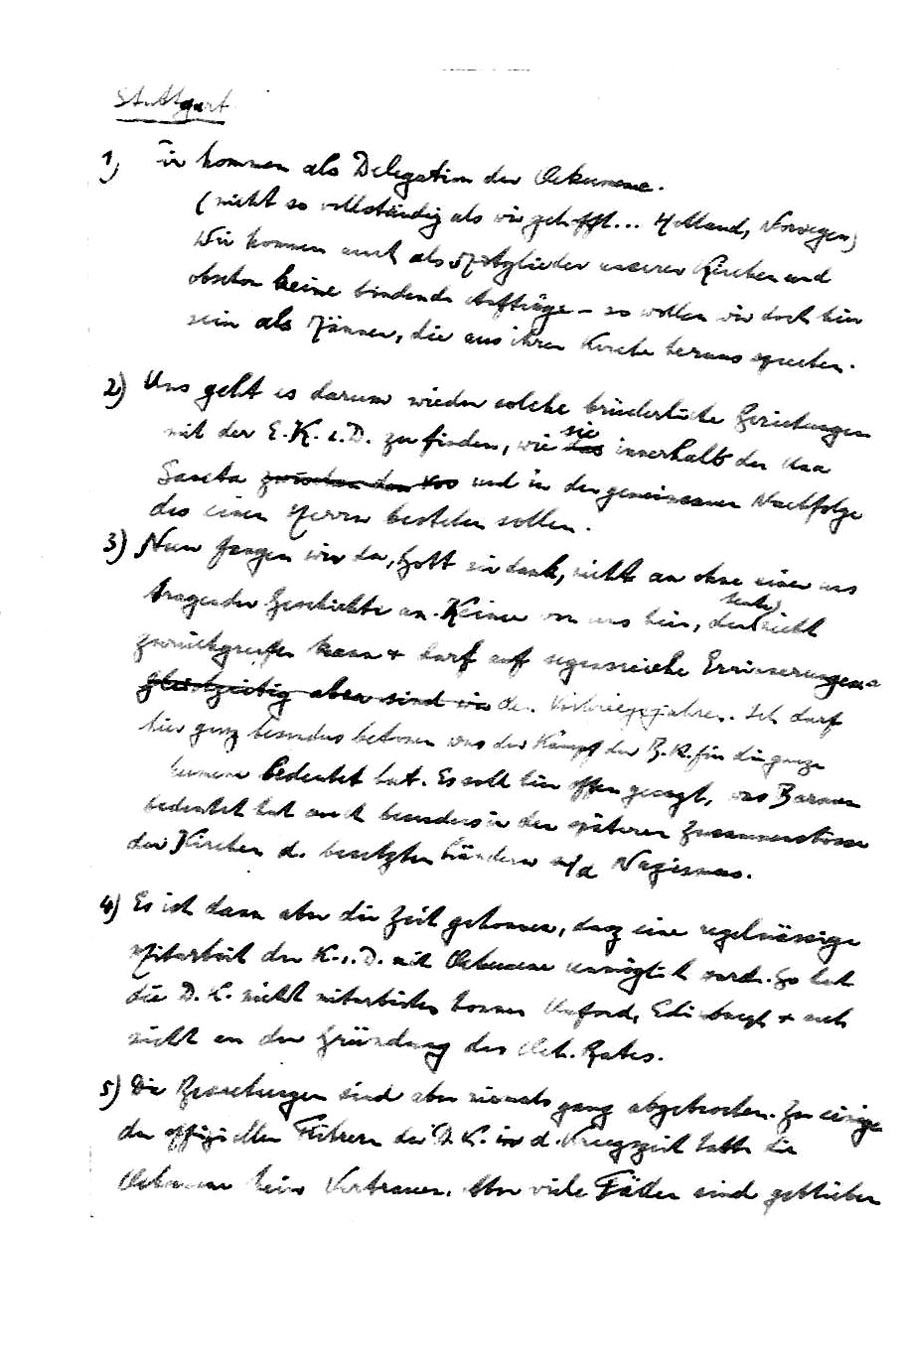 Stuttgart
1) Wir kommen als Delegation der Oekumene.
(nicht so vollständig als wir gehofft... Holland, Norwegen)
Wir kommen auch als Mitglieder unserer Kirchen und
obschon keine bindende Aufträge – so wollen wir doch hier
sein als Männer, die aus ihren Kirche heraus sprechen.
2) Uns geht es darum wieder solche brüderliche Beziehungen
mit der E.K.i.D. zu finden, wie sie innerhalb der Una
Sancta und in der gemeinsamen Nachfolge
des einen Herrn bestehen sollen.
3) Nun fangen wir da, Gott sei dank, nicht an ohne einer uns
tragender Geschichte an. Keiner von uns hier, der nicht
zurückgreifen kann + darf auf segensreiche Errinnerungen
gleichzeitig aber sind wir der Vorkriegsjahren. Ich darf
hier ganz besonders betonen was der Kampf der B.K. für die ganze
bedeutet hat. Es soll hier offen gesagt, was Barmen
bedeutet hat auch besonders in den späteren Zusammenstösse
der Kirchen d. besetzten Ländern m/d Nazismus.
4) Es ist dann aber die Zeit gekommen, dasz eine regelmässige
Mitarbeit der K.i.D. mit Oekumene unmöglich ward. So hat
die D.K. nicht mitarbeiten konnen Oxford, Edinburgh + auch
nicht an der Gründung des Oek. Rates.
5) Die Beziehungen sind aber niemals ganz abgebrochen. Zu einige
der offiziellen Führern der D.K. in d. Kriegszeit hatte die
Oekumene kein Vertrauen. Aber viele Fäden sind geblieben